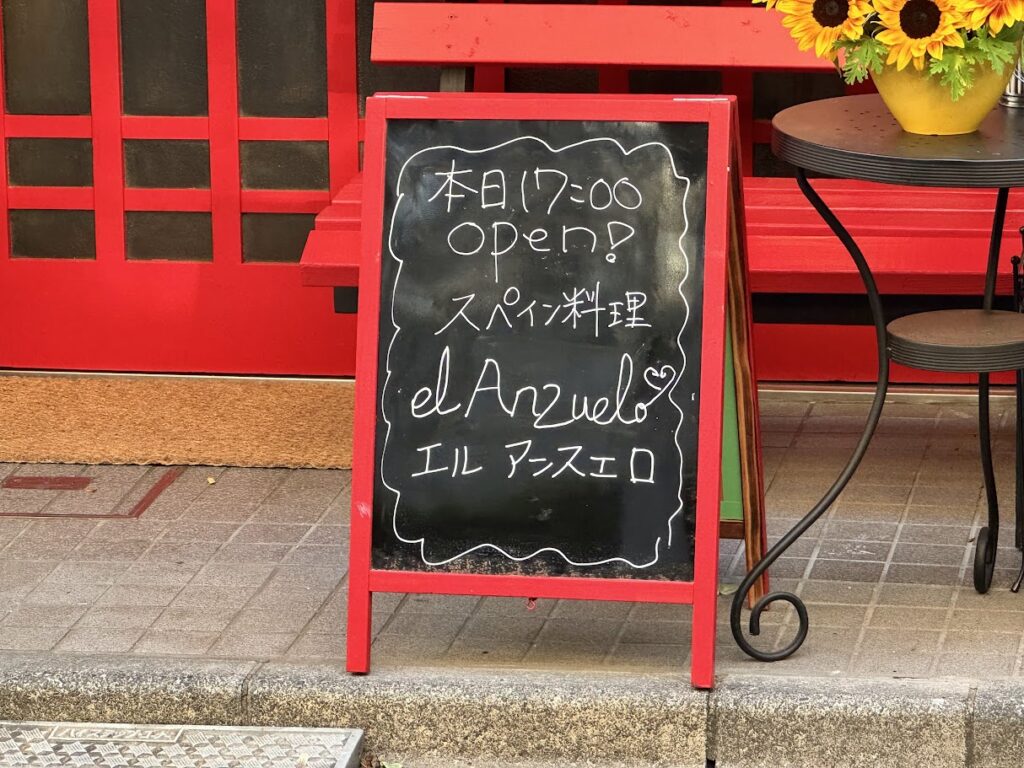 本日17:00
open!
スペイン料理
el Anzuelo
エル アンスエロ